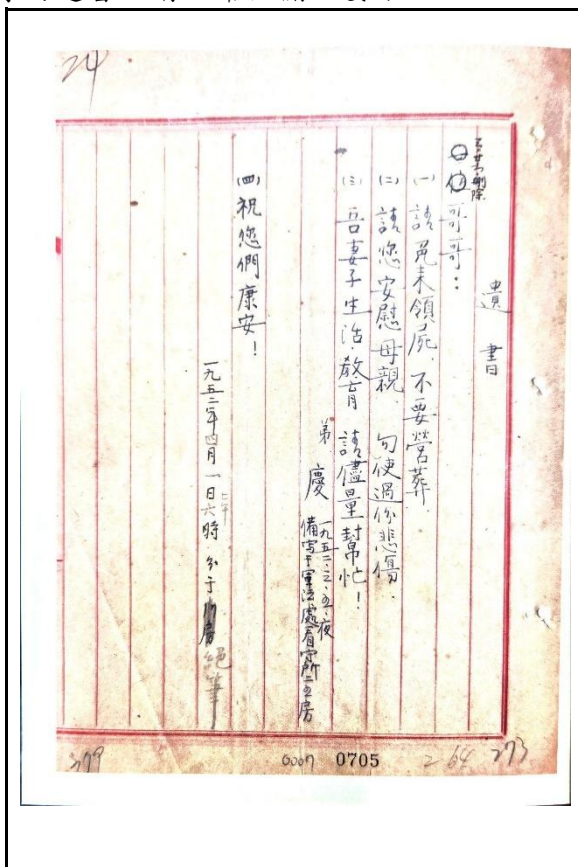 24
遺書
哥哥:
(一) 請免来領屍、不要營葬.
(二) 請您安慰母親、勿使過份悲傷.
(三) 吾妻子生活.教育 請儘量封幫忙!
弟 慶
一九五二.三.五.夜
備寫于軍法處看守所二五房
(四) 祝您們康安!
一九五二年四月一日上午六時.
絕筆
279
0705
264
273